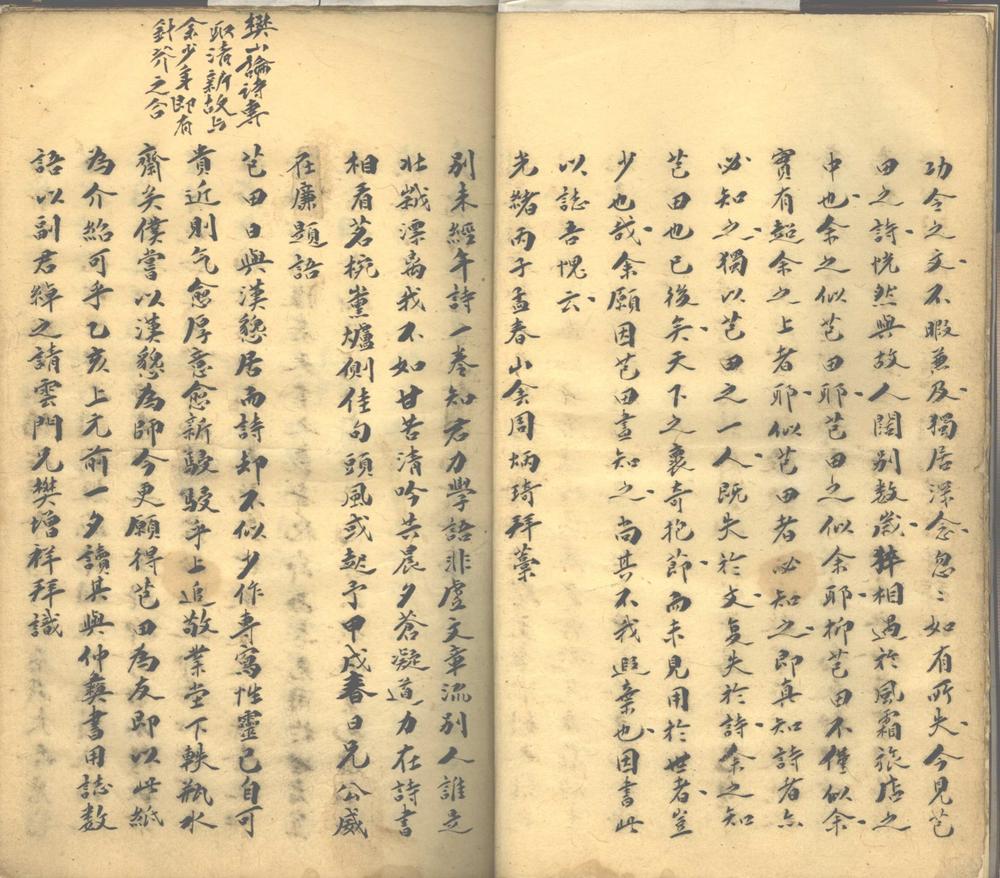 功令之文不暇兼及獨居深念忽〻如有所失今見芑
田之詩恍然與故人闊別數歲猝相遇於風霜旅店之
中也余之似芑田耶芑田之似余耶抑芑田不僅似余
實有超余之上者耶似芑田者必知之即真知詩者亦
必知之獨以芑田之一人既失於文复失於詩余之知
芑田也已後矣天下之褱奇抱節而未見用於世者豈
少也哉余願因芑田盡知之尚其不我遐棄也因書此
以誌吾愧云
光緒丙子孟春山舍周炳琦拜藁
別未經年詩一卷知君力學語非虛文章流別人誰主
壯嵗漂鬲我不如甘苦清吟共晨夕蒼凝道力在詩書
相看茗椀熏爐側佳句頭風或起予甲戌春日兄公威
在廉題語
芑田日與漢㥣居而詩却不似少作專寫性靈已自可
貴近則气愈厚意愈新駸駸乎上追敬業堂下軼瓶水
齋矣僕嘗以漢㥣為師今更願得芑田為友即以此紙
為介紹可乎乙亥上元前一夕讀其與仲彝書用誌數
語以副君綽之請雲門兄樊增祥拜識
樊山論詩專
取清新故与
余少年即有
針芥之合